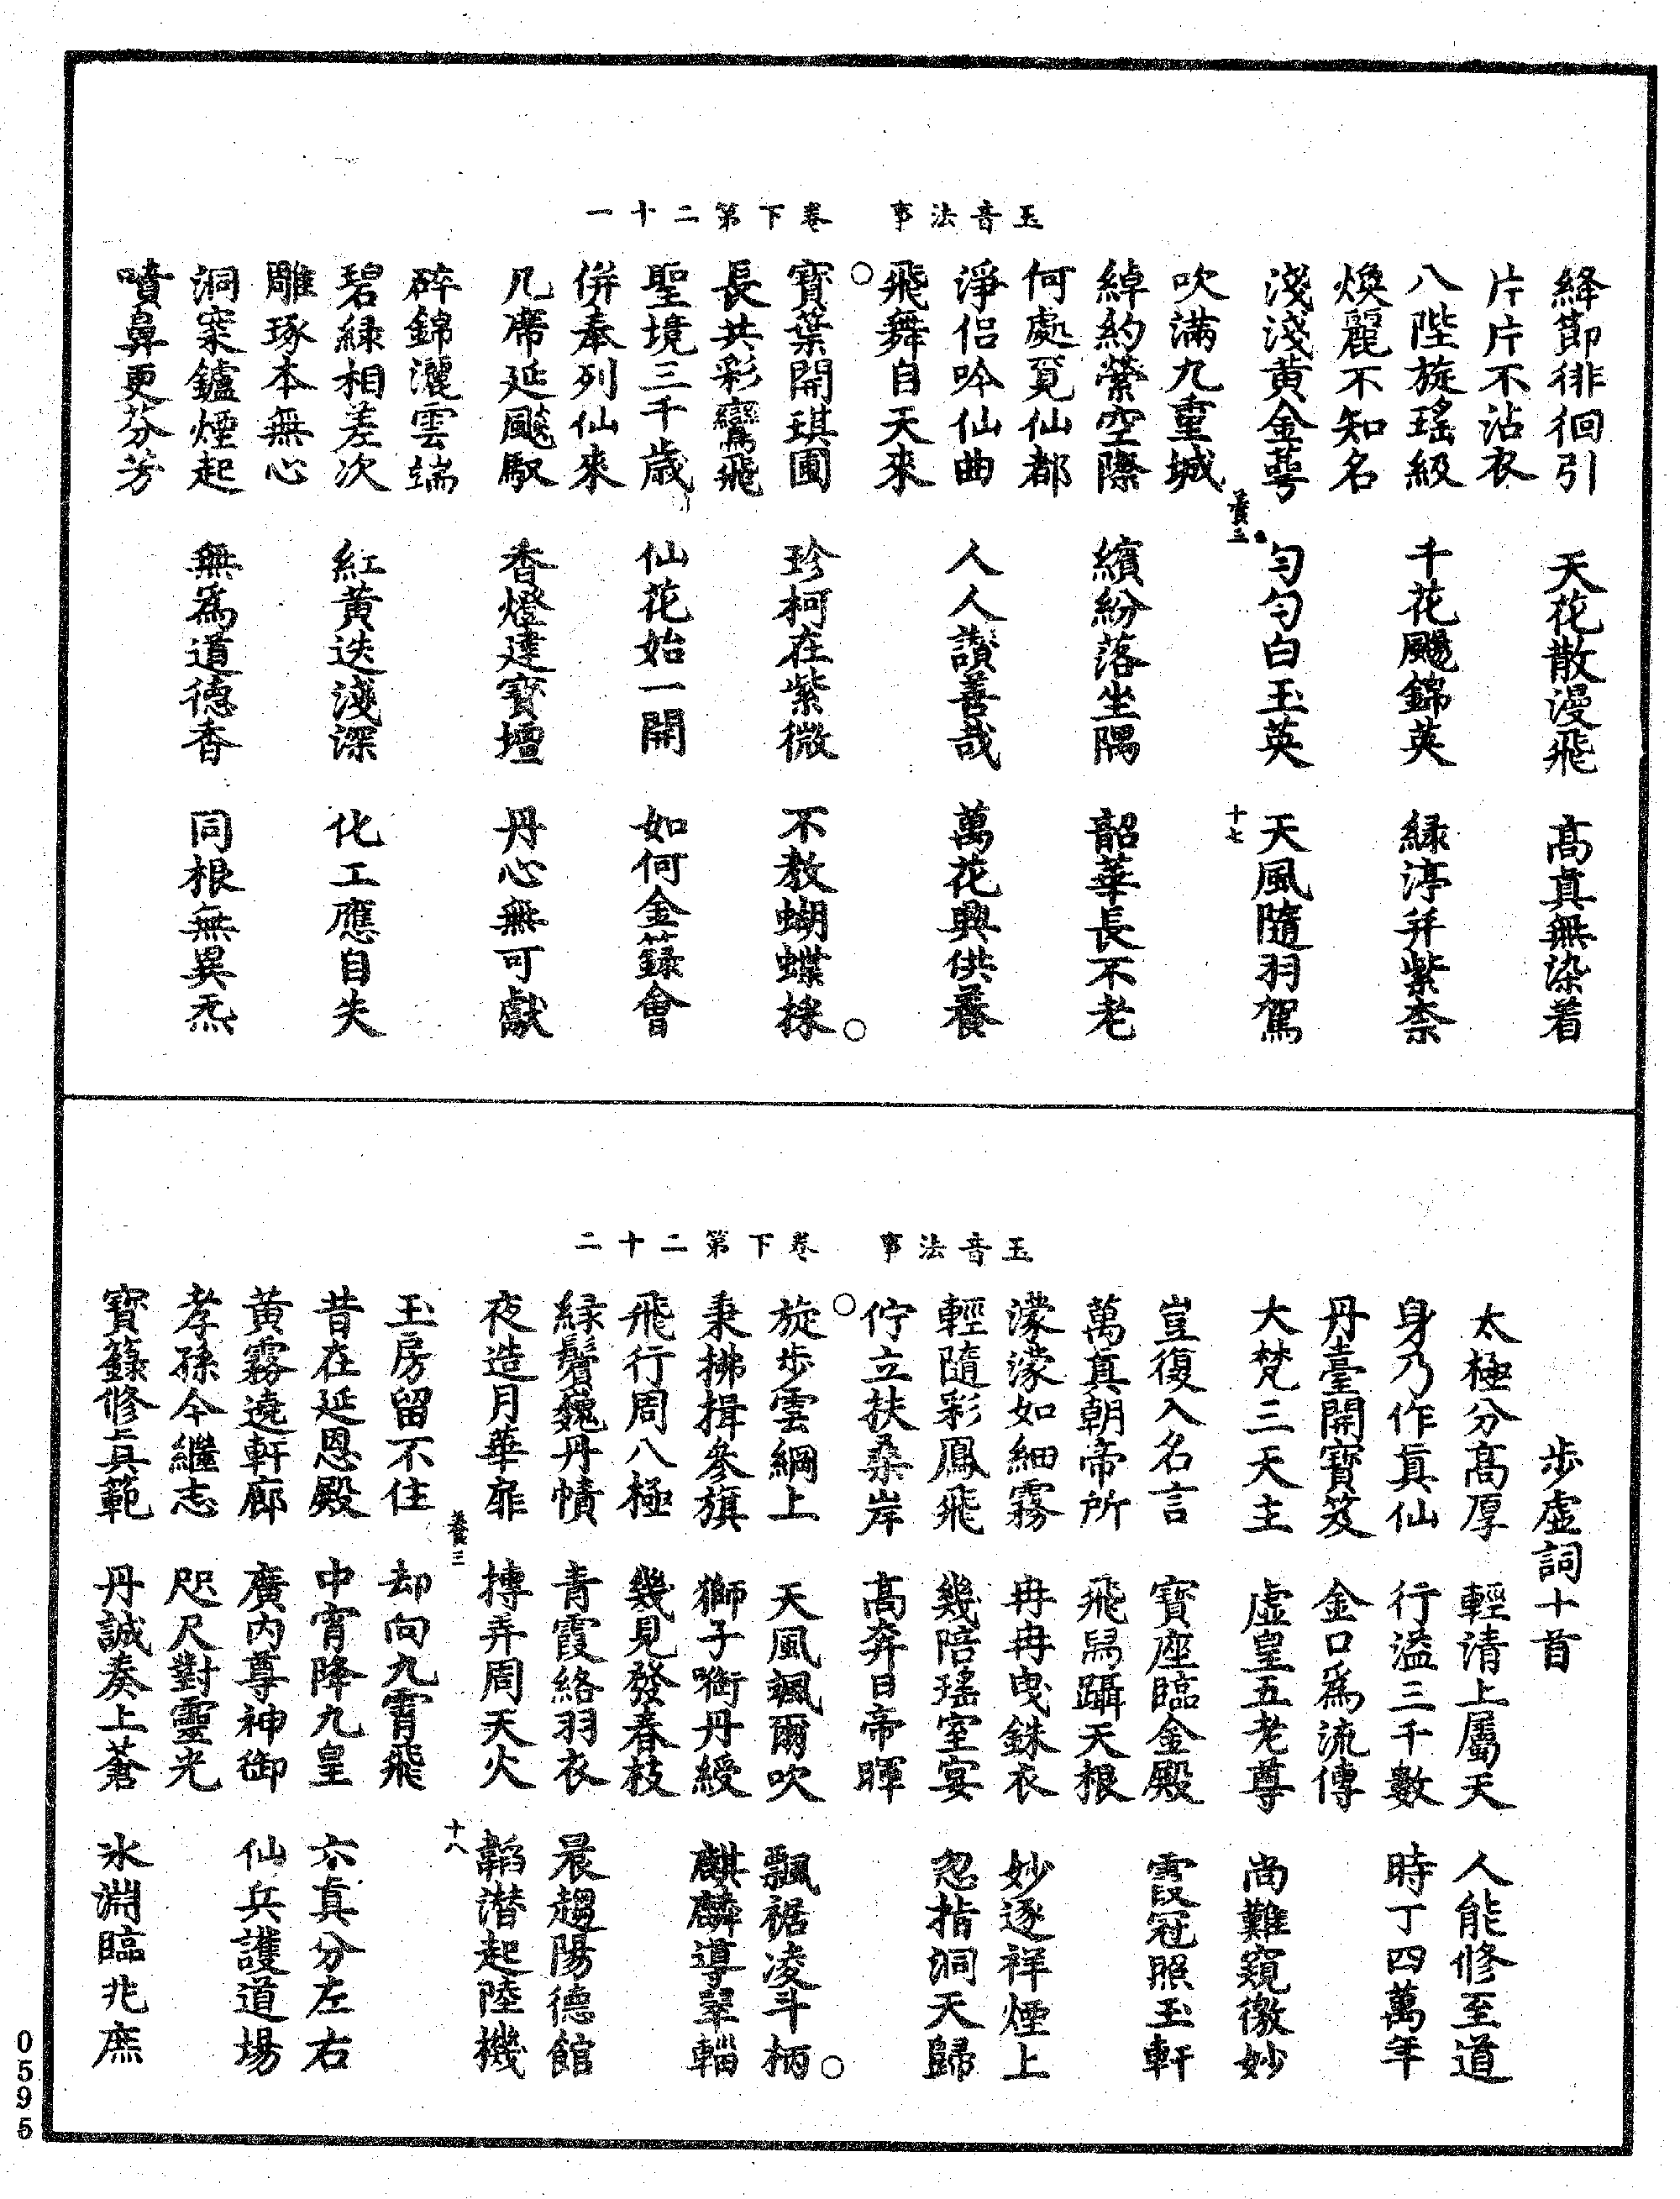 玉音法事　卷下第二十一
絳節徘徊引　天花散漫飛　高真無染着
片片不沾衣
八陛旋瑤級　千花颺錦英　緑渟并紫柰
煥麗不知名
淺淺黄金萼　勻勻白玉英　天風隨羽駕
養三　十七
吹滿九重城
綽約縈空際　繽紛落坐隅　韶華長不老
何處覓仙都
淨侣吟仙曲　人人讃善哉　萬花興供養
飛舞自天來
○　○
寶葉開琪圃　珍柯在紫微　不教蝴蝶採
長共彩鸞飛
聖境三千歲　仙花始一開　如何金籙會
併奉列仙來
几席延飈馭　香燈建寶壇　丹心無可獻
碎錦灑雲端
碧緑相差次　紅黄迭淺深　化工應自失
雕琢本無心
洞寀鑪煙起　無為道德香　同根無異炁
噴鼻更芬芳
玉音法事　卷下第二十二
步虛詞十首
太極分高厚　輕清上屬天　人能修至道
身乃作真仙　行溢三千數　時丁四萬年
丹臺開寶笈　金口為流傳
大梵三天主　虛皇五老尊　尚難窺徼妙
豈復入名言　寶座臨金殿　霞冠照玉軒
萬真朝帝所　飛舄躡天根
濛濛如細霧　冉冉曳銖衣　妙逐祥煙上
輕隨彩鳳飛　幾陪瑤室宴　忽指洞天歸
佇立扶桑岸　高奔日帝暉
○　○
旋步雲綱上　天風颯爾吹　飄裾凌斗柄
秉拂揖參旗　獅子銜丹綬　麒麟導翠輜
飛行周八極　幾見發春枝
緑鬢巍丹幘　青霞絡羽衣　晨趨陽德館
夜造月華扉　摶弄周天火　韜潜起陸機
養三　十八
玉房留不住　却向九霄飛
昔在延恩殿　中宵降九皇　六真分左右
黄霧遶軒廊　廣內尊神御　仙兵護道場
孝孫今繼志　咫尺對靈光
寶籙修真範　丹誠奏上蒼　氷淵臨兆庶
0595